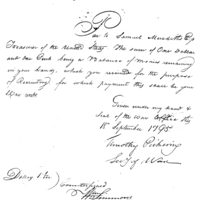 Pay to Samuel Meredith Esq
Treasurer of the United States The sum of One Dollar
and one Cent being a Balance of monies remaining
in your hands, which you received for the purpose
of Recruiting for which payment this shall be your
Warrant
Given under my hand &
Seal of the War Office this
18 September 1795
Timothy Pickering
Secy of War
Countersigned